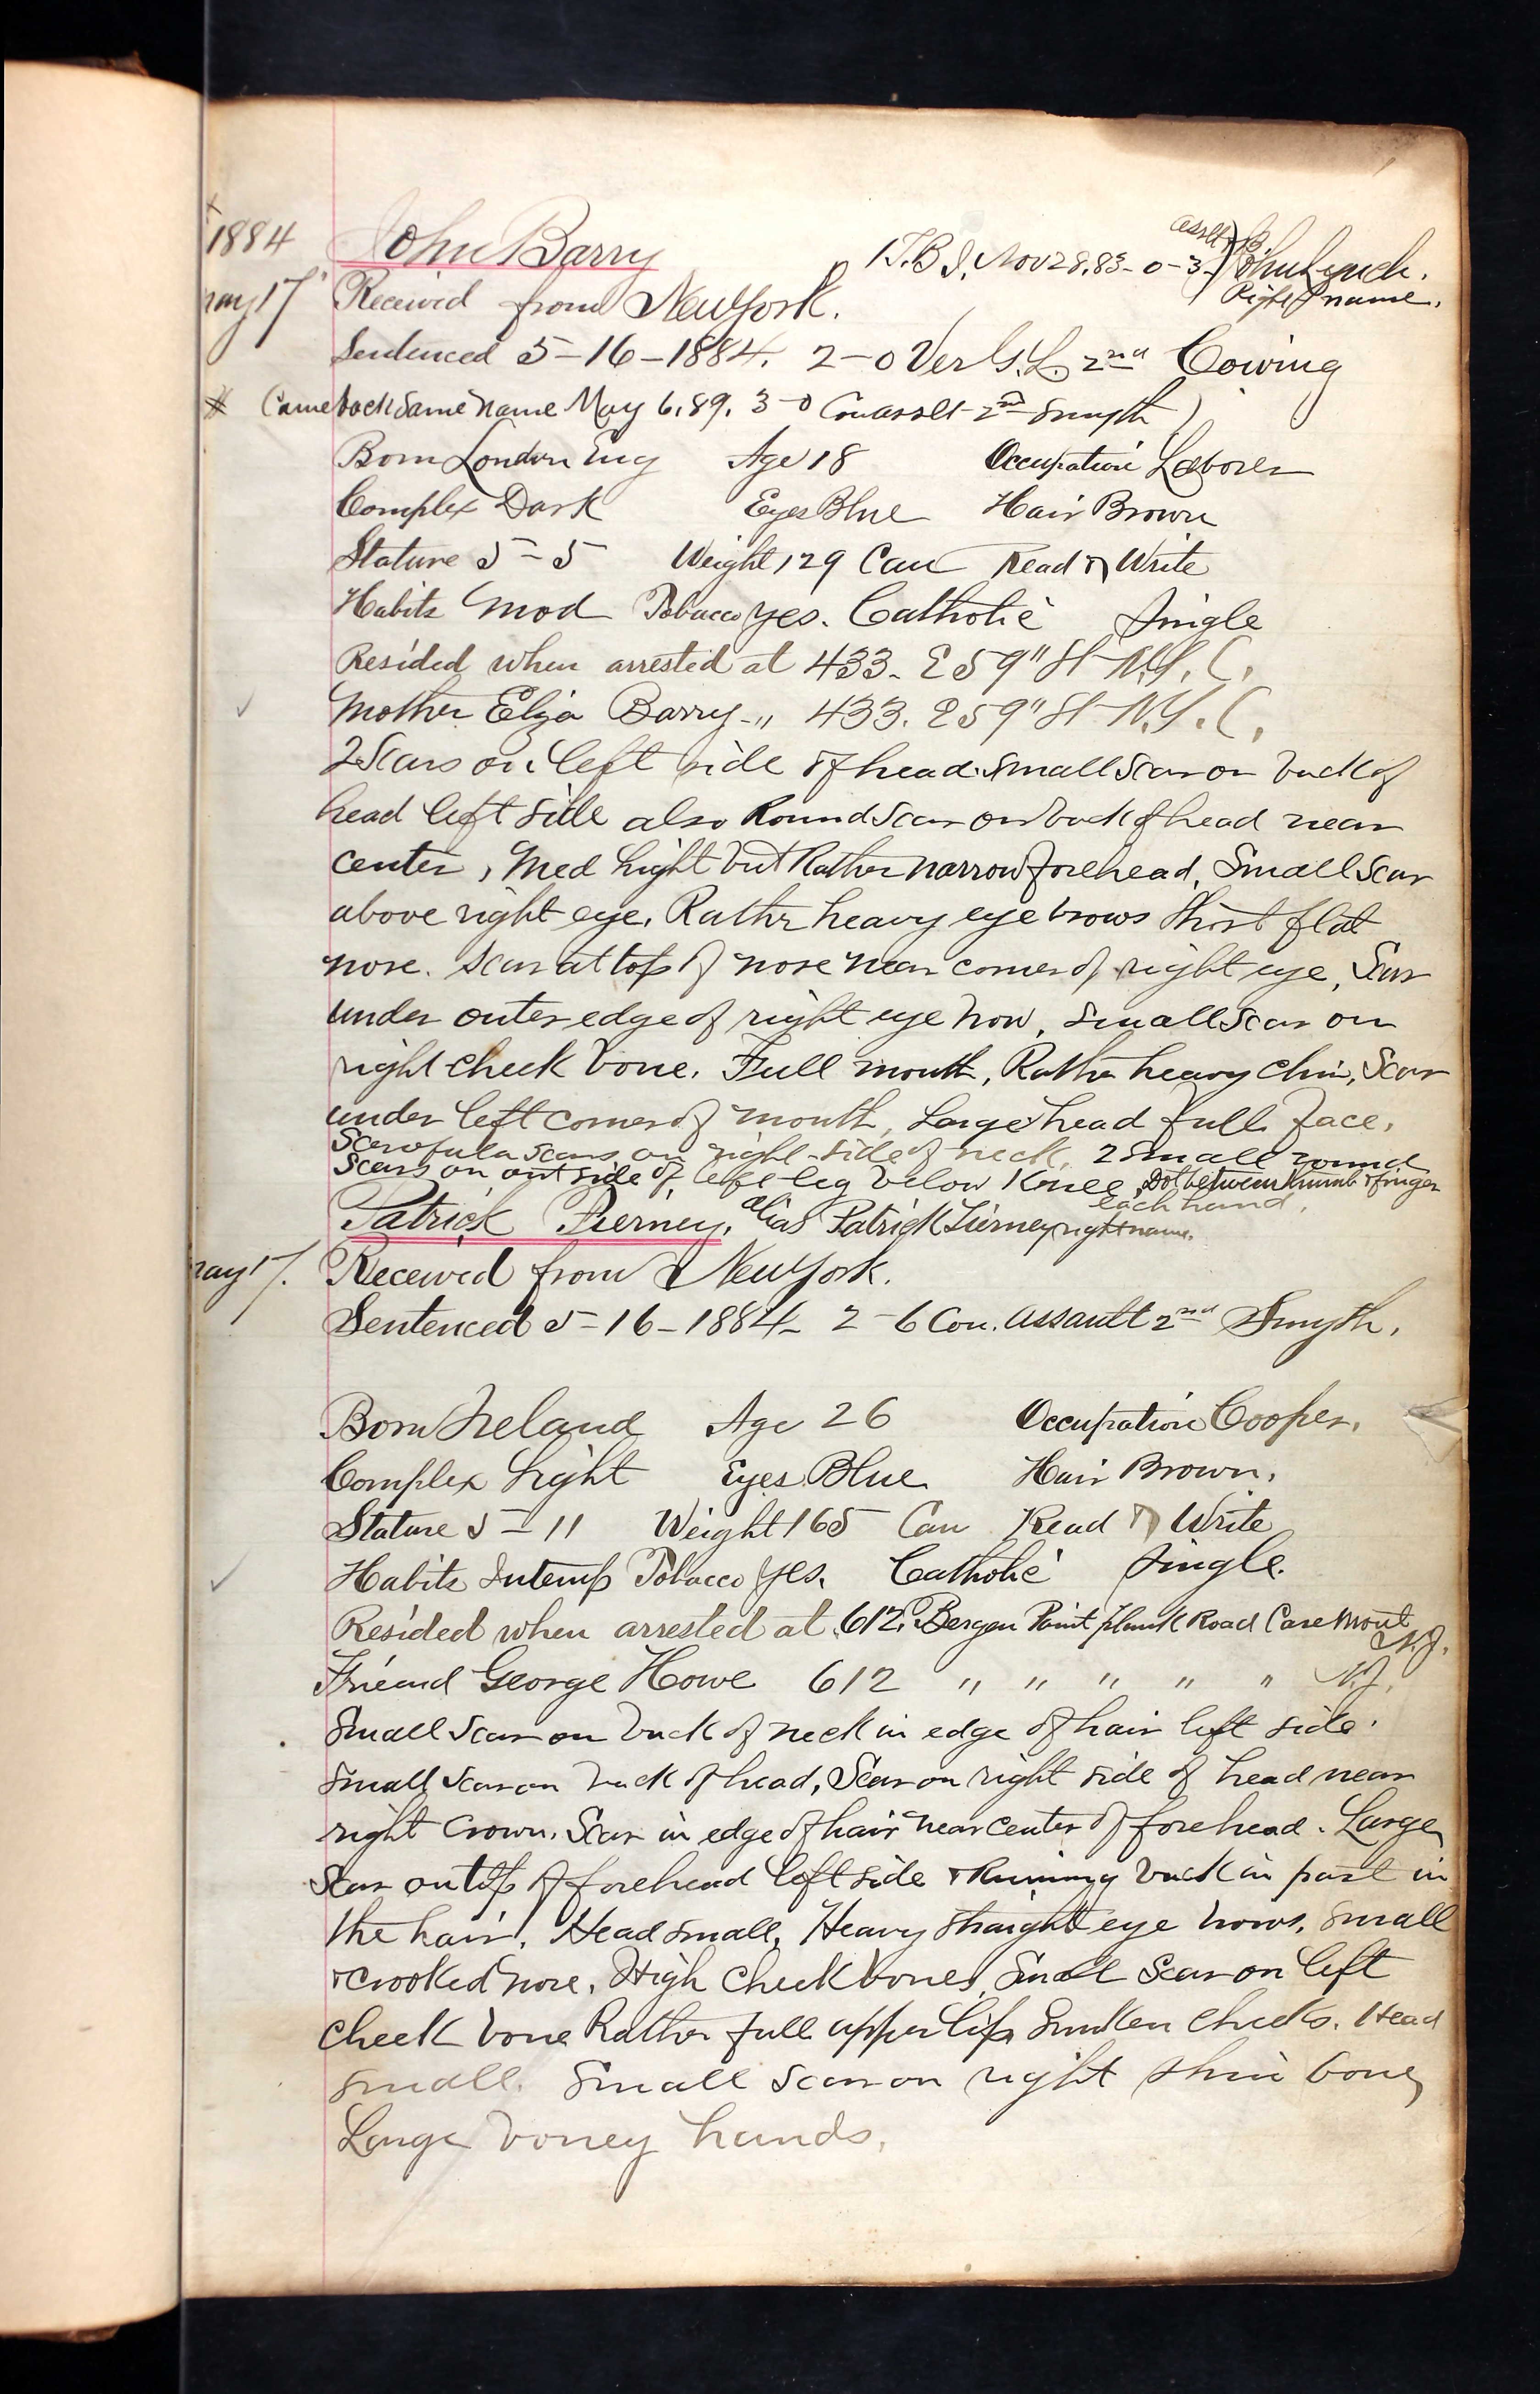 1884 John Barry 1 T. B. I. Nov 28. 83 - 0 - 3 - asslt John Lynch.
Right name.
May 17" Received from New York.
Sentenced 5-16-1884. 2-0 Ver G. L. 2nd Cowing
(Came back same name May 6. 89. 3-0 Con asslt 2nd Smyth)
Born London Eng Age 18 Occupation Laborer
Complex Dark Eyes Blue Hair Brown
Stature 5-5 Weight 129 Can Read & Write
Habits Mod Tobacco yes. Catholic Single
Resided when arrested at 433. E 59" St N.Y.C.
Mother Eliza Barry " 433. E 59" St N.Y.C.
2 Scars on left side of head. Small Scar on back of
head left side also Round Scar on back of head near
center, Med hight but Rather narrow forehead, Small Scar
above right eye. Rathr heavy eye brows Short flat
nose. Scar at top of nose near corner of right eye, Scar
under outer edge of right eye brow, Small Scar on
right cheek bone. Full mouth, Rather heavy chin, Scar
under left corner of mouth, Large head full face,
Scrofula Scars on right side of neck, 2 Small round
Scars on out side of left leg below Knee, Dot between thumb & finger
each hand.
Patrick Pierney, alias Patrick Tierney right name.
May 17. Received from New York.
Sentenced 5-16-1884- 2-6 Con. Assault 2nd Smyth.
Born Ireland Age 26 Occupation Cooper.
Complex Light Eyes Blue Hair Brown.
Stature 5-11 Weight 165 Can Read & Write
Habits Intemp Tobacco yes. Catholic Single.
Resided when arrested at 612. Bergen Point plank Road Caremont
N.J.
Friend George Howe 612 " " " " " N.J.
Small Scar on back of neck in edge of hair left side.
Small Scar on back of head, Scar on right side of head near
right Crown. Scar in edge of hair near center of forehead. Large
Scar on top of forehead left side & Runing back in part in
the hair. Head small, Heavy straight eye brows, Small
& crooked nose, High Cheek bones, Small Scar on left
cheek bone Rather full upper lip Sunken Cheeks. Head
Small. Small Scar on right shin bone,
Large boney hands.